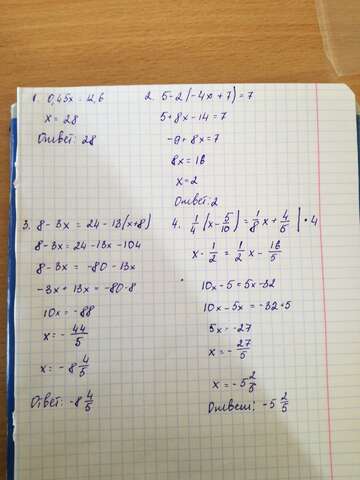 1. 0,45x = 12,6
x = 28
Ответ: 28
2. 5-2(-4x+7)=7
5+8x-14=7
-9+8x=7
8x=16
x=2
Ответ: 2
3. 8-3x=24-13(x+8)
8-3x=24-13x-104
8-3x=-80-13x
-3x+13x=-80-8
10x=-88
x=-44/5
x=-8 4/5
Ответ: -8 4/5
4. 1/4(x-5/10)=1/8x+4/5 |·4
x-1/2=1/2x-16/5
10x-5=5x-32
10x-5x=-32+5
5x=-27
x=-27/5
x=-5 2/5
Ответ: -5 2/5